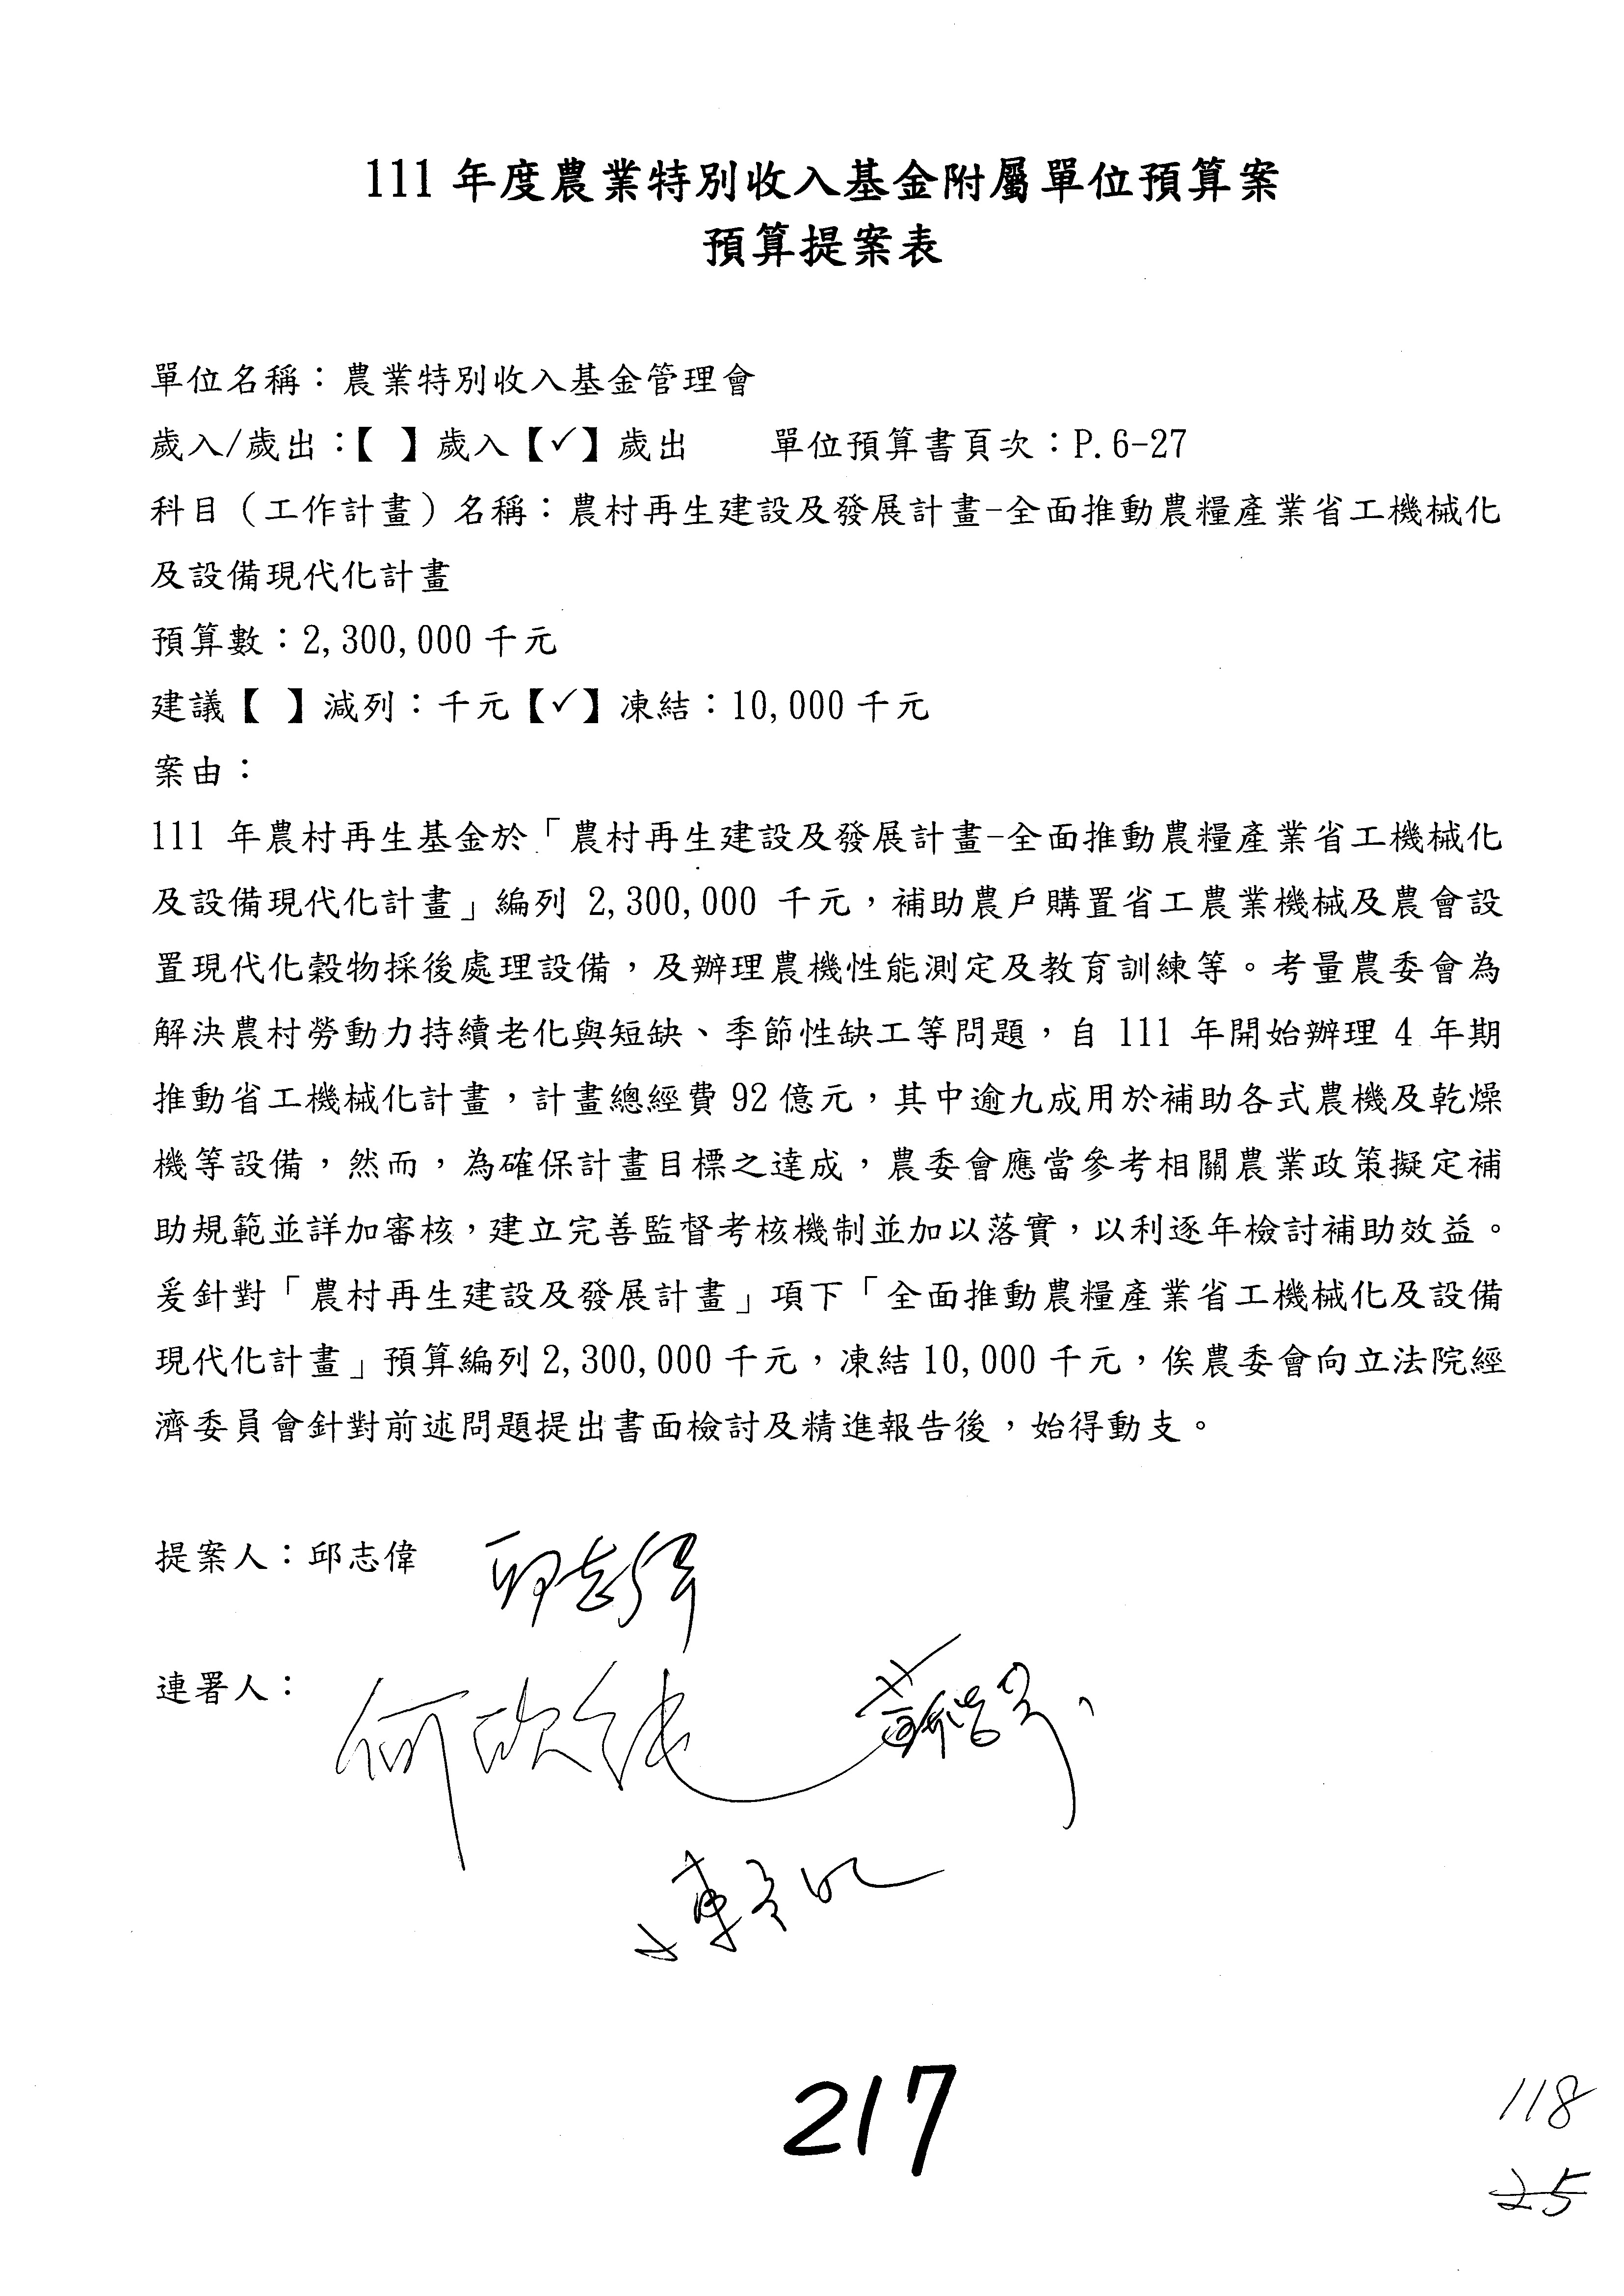 111 年度農業特別收入基金附屬單位預算案
預算提案表
單位名稱：農業特別收入基金管理會
歲入/歲出：【 】歲入【✓】歲出 單位預算書頁次：P.6-27
科目（工作計畫）名稱：農村再生建設及發展計畫-全面推動農糧產業省工機械化
及設備現代化計畫
預算數：2,300,000 千元
建議【 】減列：千元【✓】凍結：10,000 千元
案由：
111 年農村再生基金於「農村再生建設及發展計畫-全面推動農糧產業省工機械化
及設備現代化計畫」編列 2,300,000 千元，補助農戶購置省工農業機械及農會設
置現代化穀物採後處理設備，及辦理農機性能測定及教育訓練等。考量農委會為
解決農村勞動力持續老化與短缺、季節性缺工等問題，自 111 年開始辦理 4 年期
推動省工機械化計畫，計畫總經費 92 億元，其中逾九成用於補助各式農機及乾燥
機等設備，然而，為確保計畫目標之達成，農委會應當參考相關農業政策擬定補
助規範並詳加審核，建立完善監督考核機制並加以落實，以利逐年檢討補助效益。
爰針對「農村再生建設及發展計畫」項下「全面推動農糧產業省工機械化及設備
現代化計畫」預算編列 2,300,000 千元，凍結 10,000 千元，俟農委會向立法院經
濟委員會針對前述問題提出書面檢討及精進報告後，始得動支。
提案人：邱志偉 邱志偉
連署人：何欣純
217
118
25